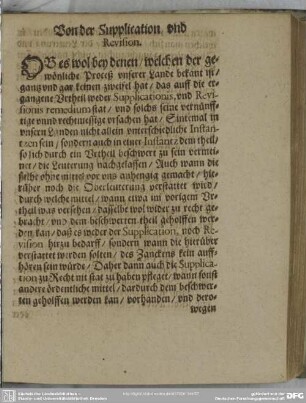 Von der Supplication, vnd
Revision.
OB es wol bey denen / welchen der ge-
wönliche Proceß vnserer Lande bekant ist /
gantz vnd gar keinen zweifel hat / das auff die er-
gangene Vrtheil weder Supplicationis, vnd Revi-
sionis remedium stat / vnd solchs seine vernünff-
tige vnnd rechtmessige vrsachen hat / Sintemal in
vnsern Landen nicht allein vnterschiedliche Instan-
tien sein / sondern auch in einer Instantz / dem theil /
so sich durch ein Vrtheil beschwert zu sein vermei-
net / die Leuterung nachgelassen / Auch wann die
selbe ohne mittel vor vns anhengig gemacht / hie-
rüber noch die Oberleuterung verstattet wird /
durch welche mittel / wann etwa im vorigem Vr-
theil was versehen / dasselbe wol wider zu recht ge-
bracht / vnd dem beschwerten theil geholffen wer-
den kan / daß es weder der Supplication, noch Re-
vision hirzu bedarff / sondern wann die hierüber
verstattet werden solten / des Zanckens kein auff-
hören sein würde / Daher dann auch die Supplica-
tion zu Recht nit stat zu haben pfleget / wann sonst
andere ordentliche mittel / dardurch dem beschwer-
ten geholffen werden kan / vorhanden / vnd dero-
wegen